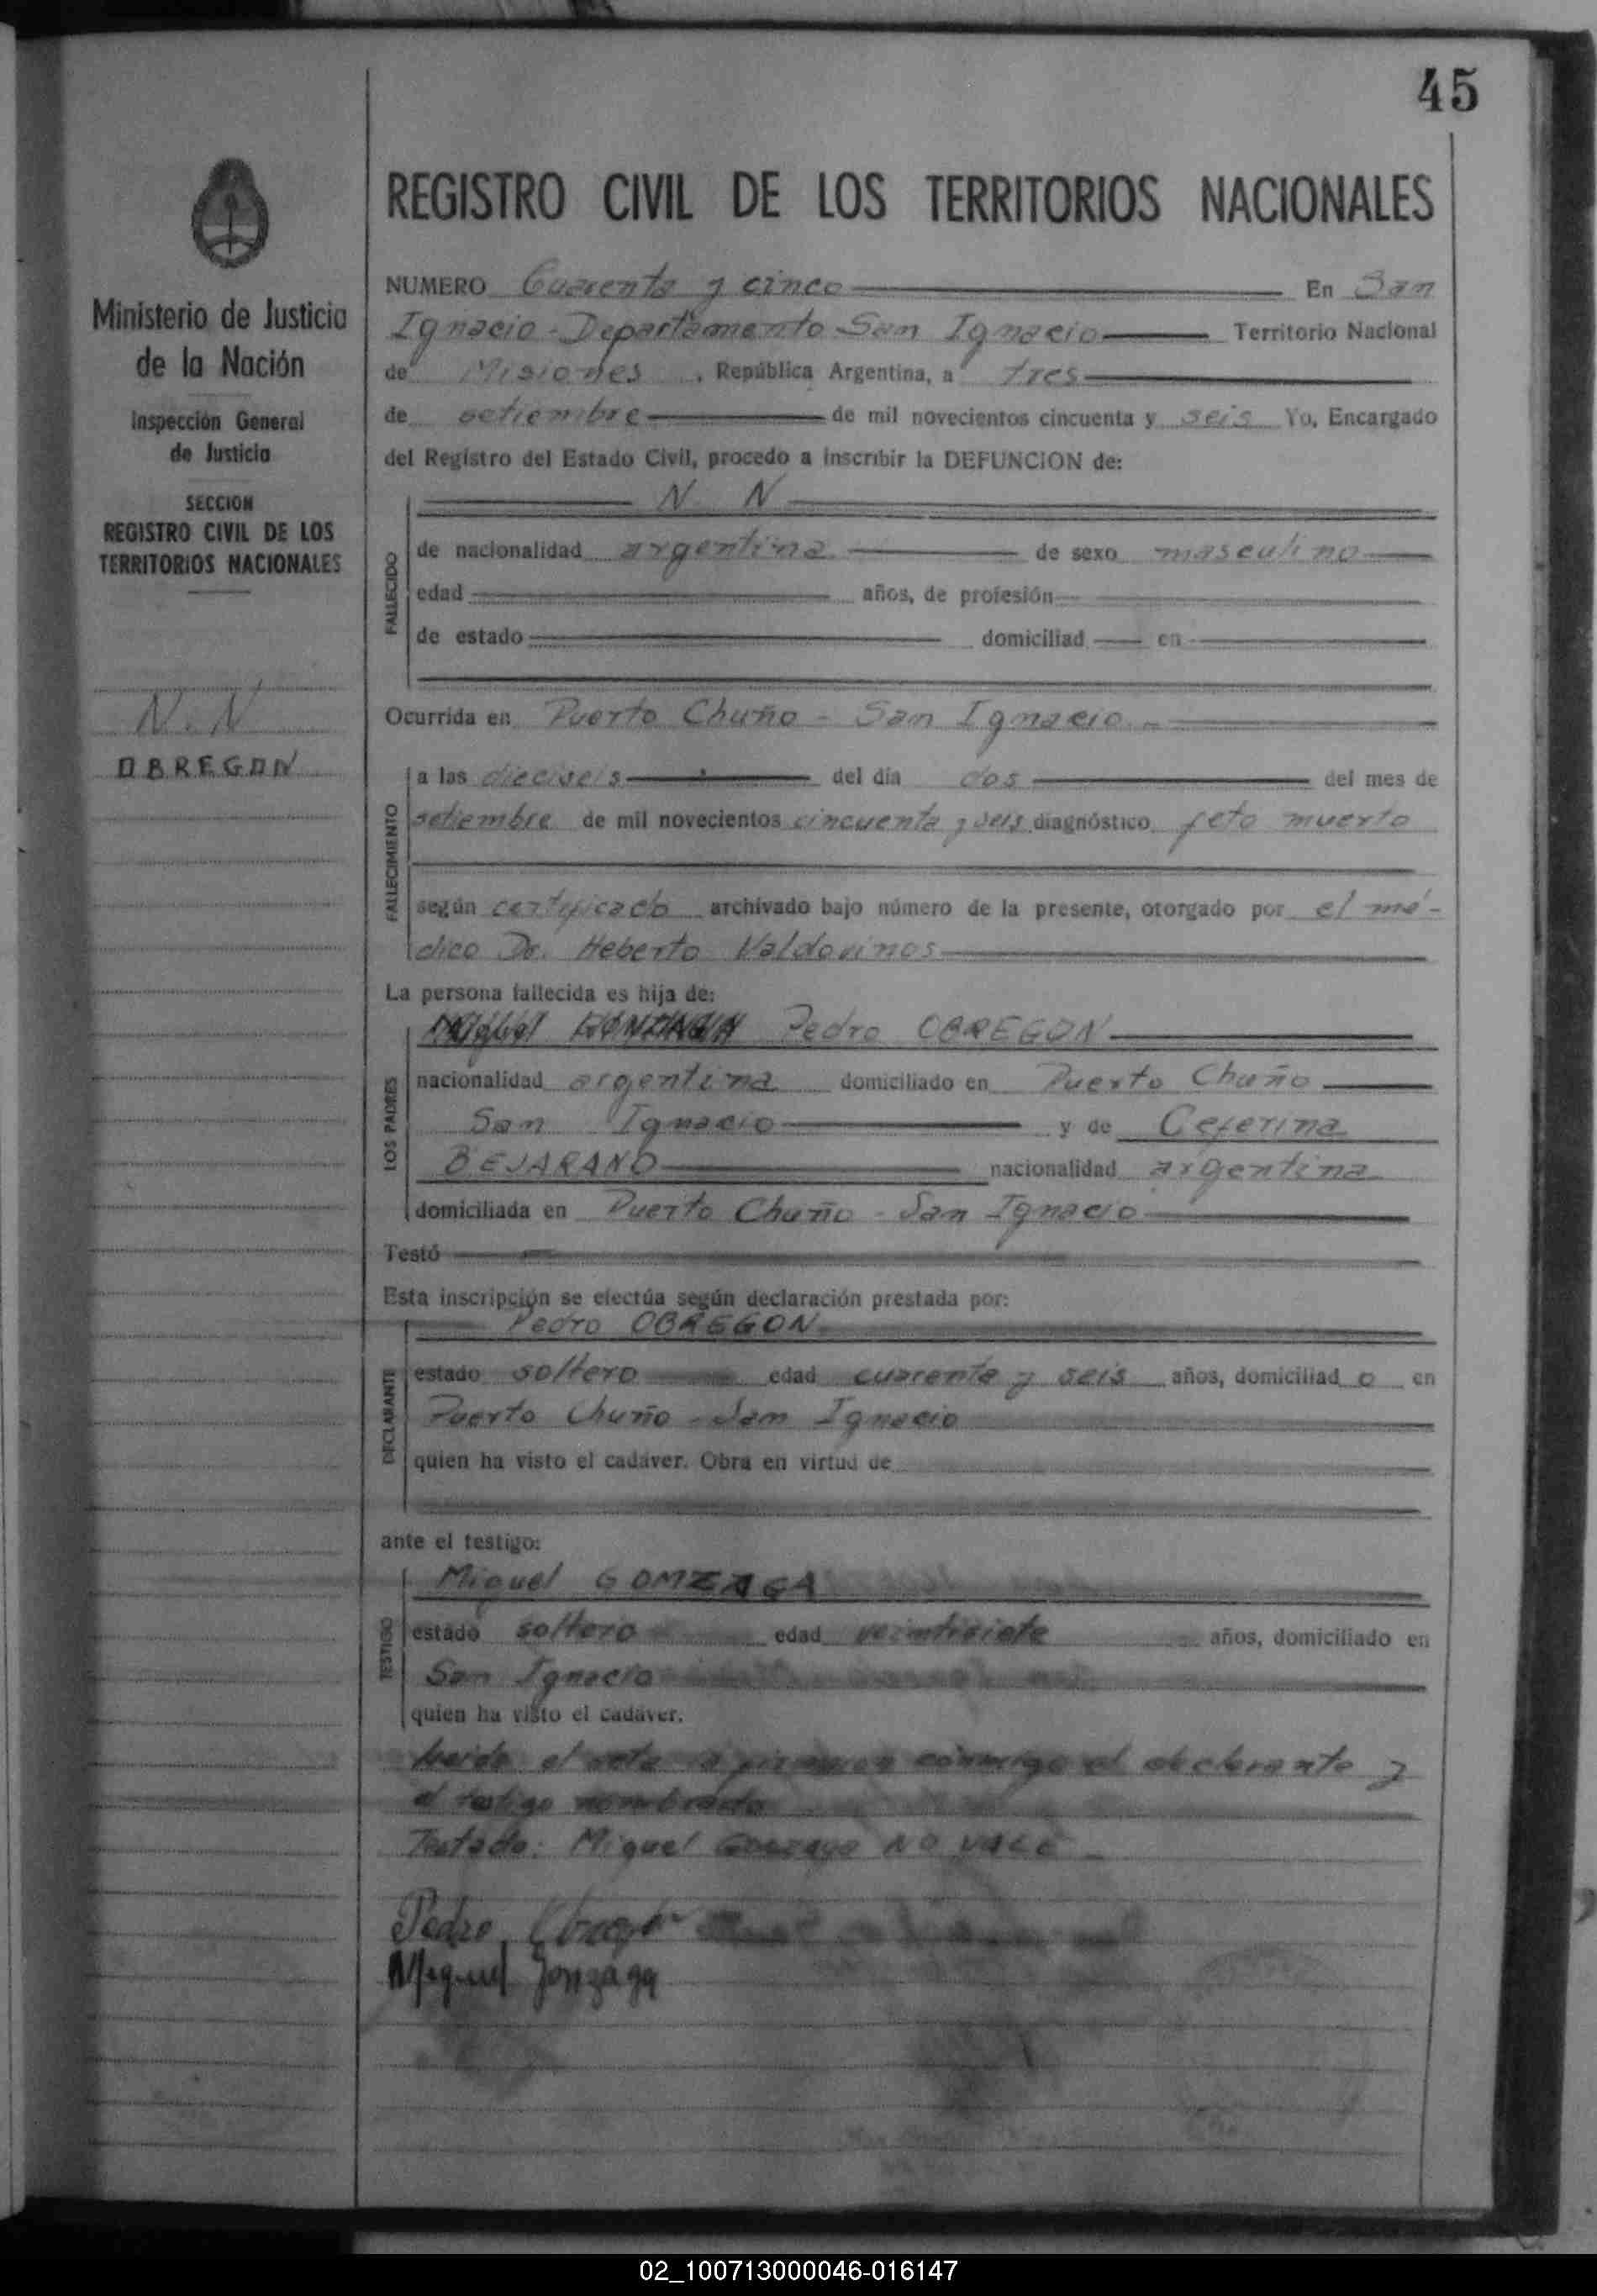 45
Ministerio de Justicia
de la Nación
Inspección General
de Justicia
SECCION
REGISTRO CIVIL DE LOS
TERRITORIOS NACIONALES
N. N
OBREGON
REGISTRO CIVIL DE LOS TERRITORIOS NACIONALES
NUMERO Cuarenta y cinco En San
Ignacio - Departamento San Ignacio Territorio Nacional
de Misiones , República Argentina, a tres
de setiembre de mil novecientos cincuenta y seis Yo, Encargado
del Registro del Estado Civil, procedo a inscribir la DEFUNCION de:
N N
FALLECIDO
de nacionalidad argentina de sexo masculino
edad años, de profesión
de estado domiciliad en
Ocurrida en Puerto Chuño - San Ignacio
FALLECIMIENTO
a las dieciseis del día dos del mes de
setiembre de mil novecientos cincuenta y seis diagnóstico feto muerto
según certificado archivado bajo número de la presente, otorgado por el mé-
dico Dr. Heberto Valdovinos
La persona fallecida es hija de:
LOS PADRES
Miguel GONZAGA Pedro OBREGON
nacionalidad argentina domiciliado en Puerto Chuño
San Ignacio y de Ceferina
BEJARANO nacionalidad argentina
domiciliada en Puerto Chuño - San Ignacio
Testó
Esta inscripción se efectúa según declaración prestada por:
Pedro OBREGON
DECLARANTE
estado soltero edad cuarenta y seis años, domiciliad o en
Puerto Chuño - San Ignacio
quien ha visto el cadáver. Obra en virtud de
ante el testigo:
Miguel GOMZAGA
TESTIGO
estado soltero edad veintisiete años, domiciliado en
San Ignacio
quien ha visto el cadáver.
Leida el acta la firman conmigo el declarante y
el testigo nombrado
Testado: Miguel Gonzaga NO VALE
Pedro Obregón
Miguel Gonzaga
02_100713000046-016147